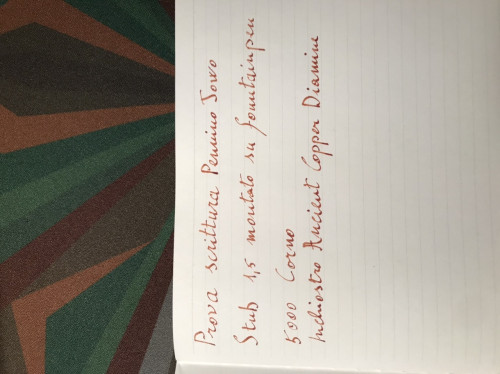 Prova scrittura Pennino Jowo
Stub 1,5 montato su fountainpen
5900 Corno
Inchiostro Ancient Copper Diamine